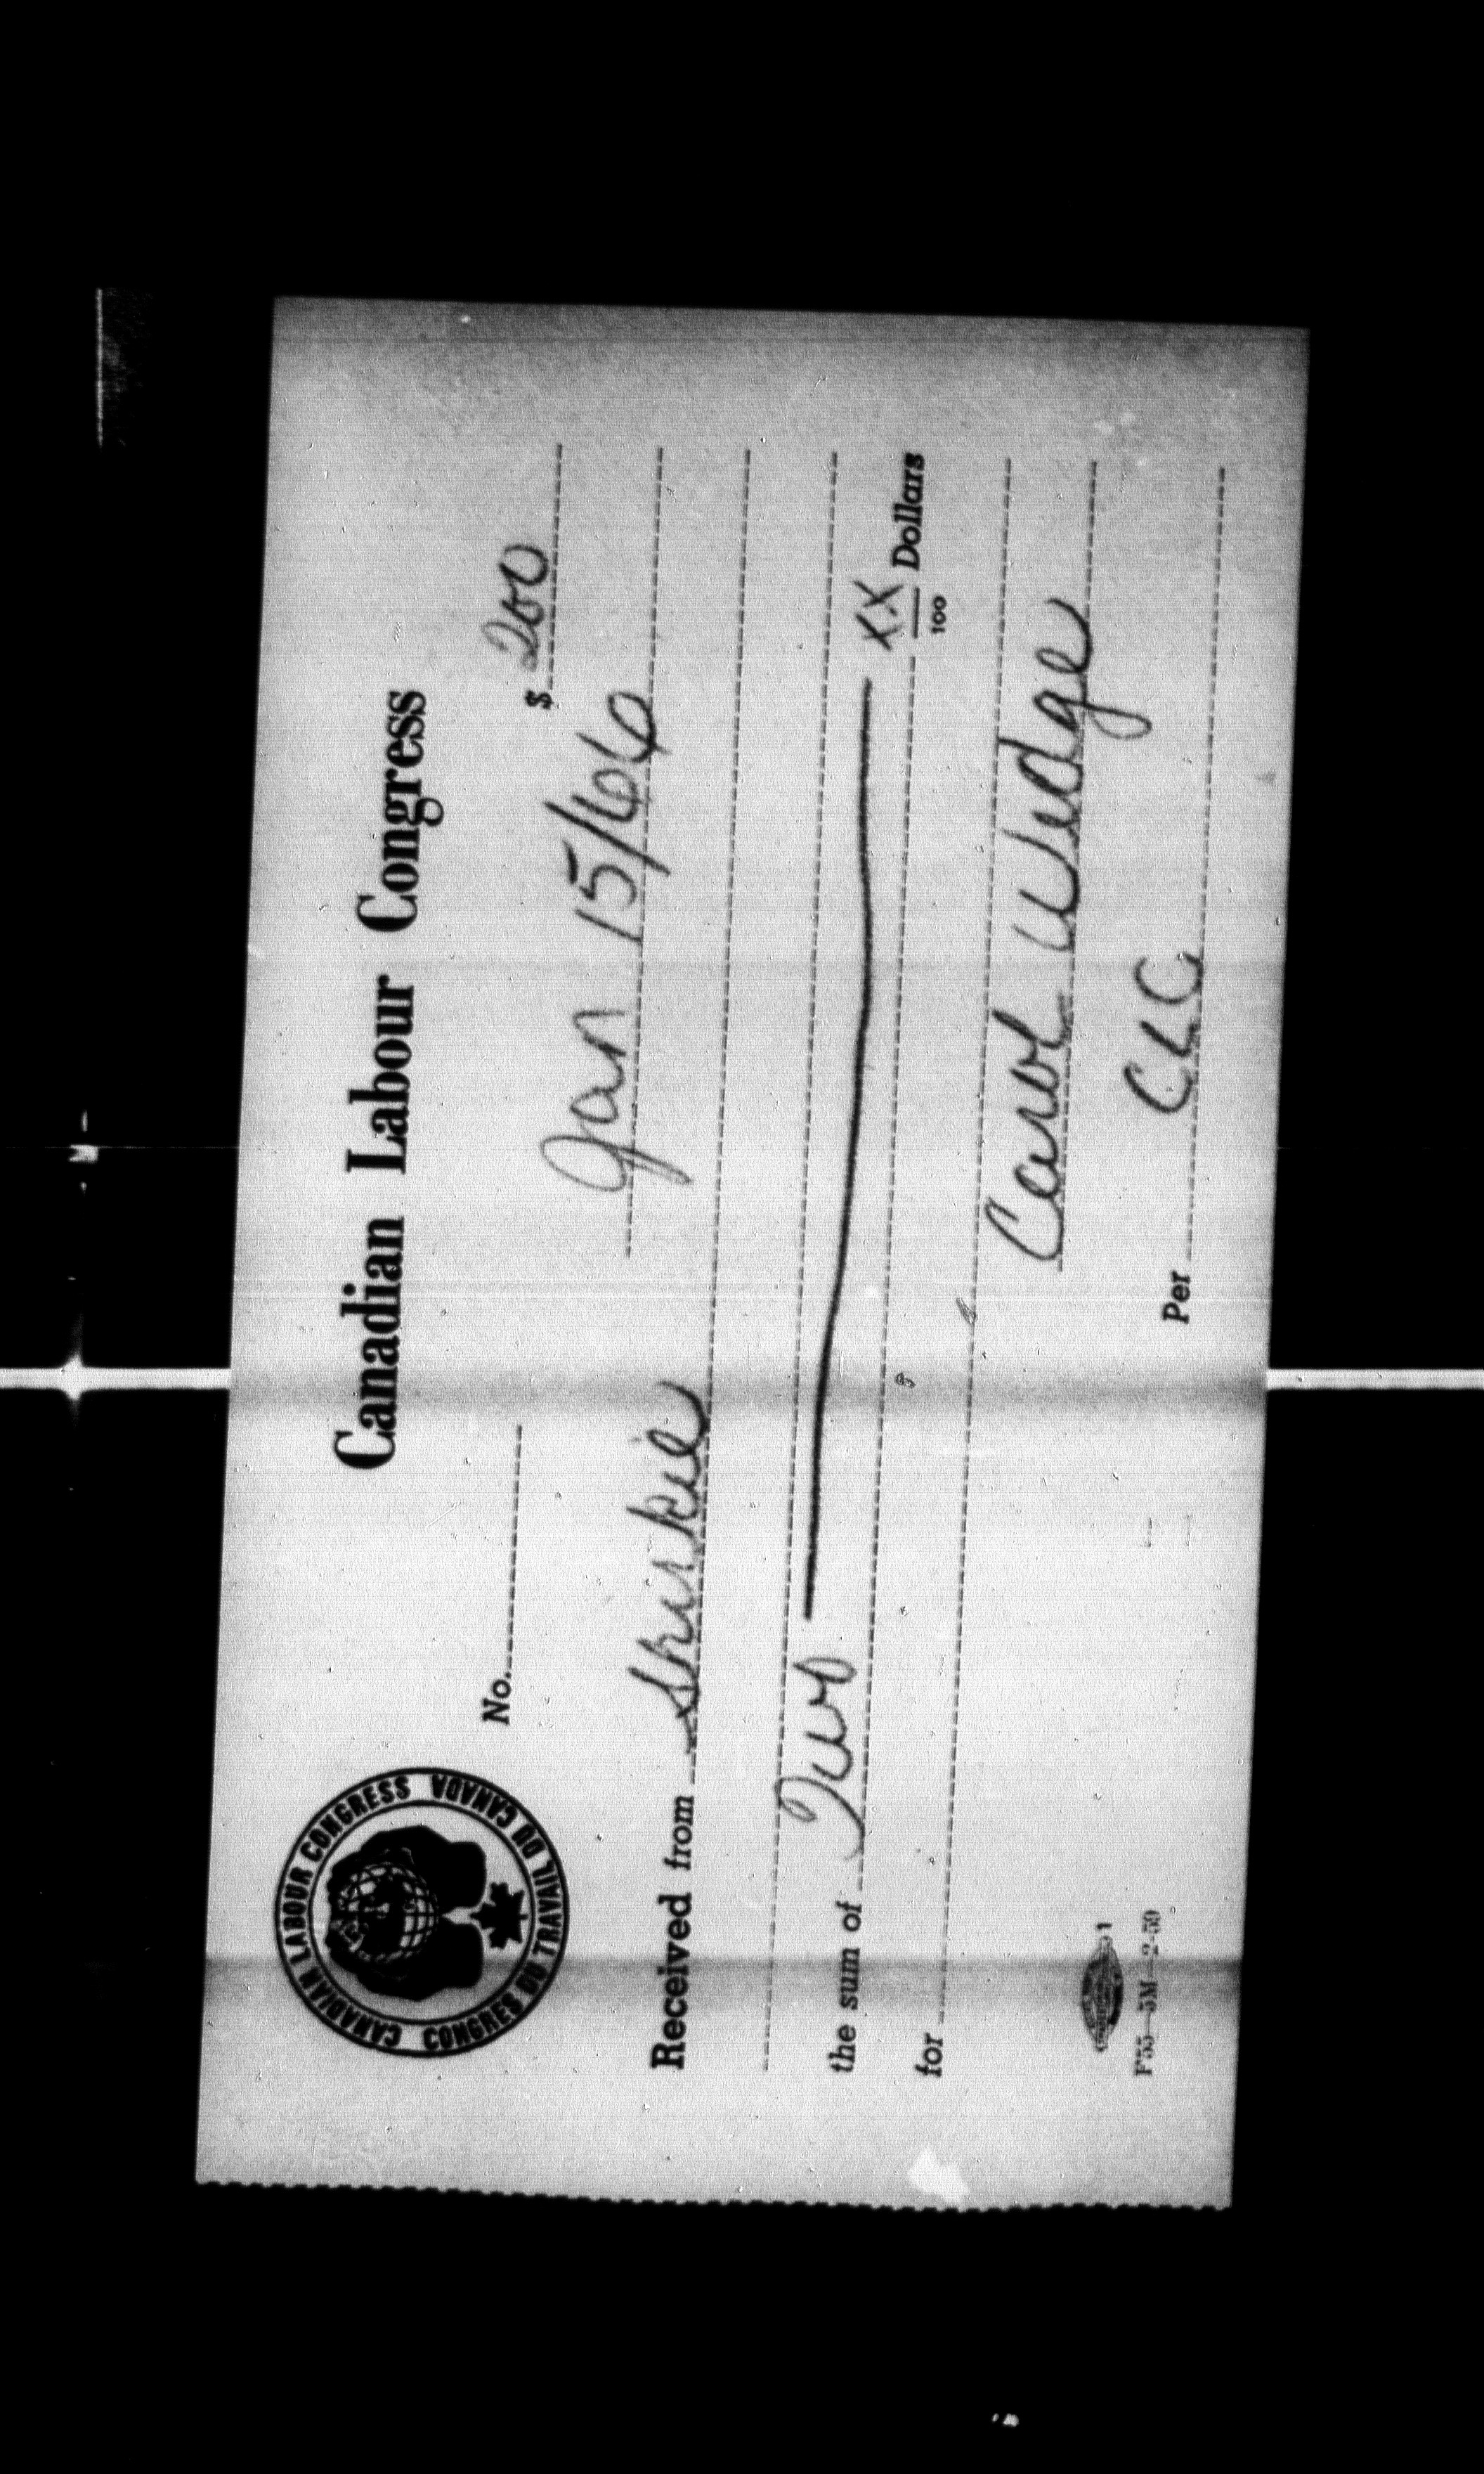 Canadian Labour Congress
CANADIAN LABOUR CONGRESS
CONGRES DU TRAVAIL DU CANADA
No. $ 200
Jan 15/66
Received from
the sum of Two XX/100 Dollars
for
Carol Wedge
Per CLC
1
F55—5M—2-59